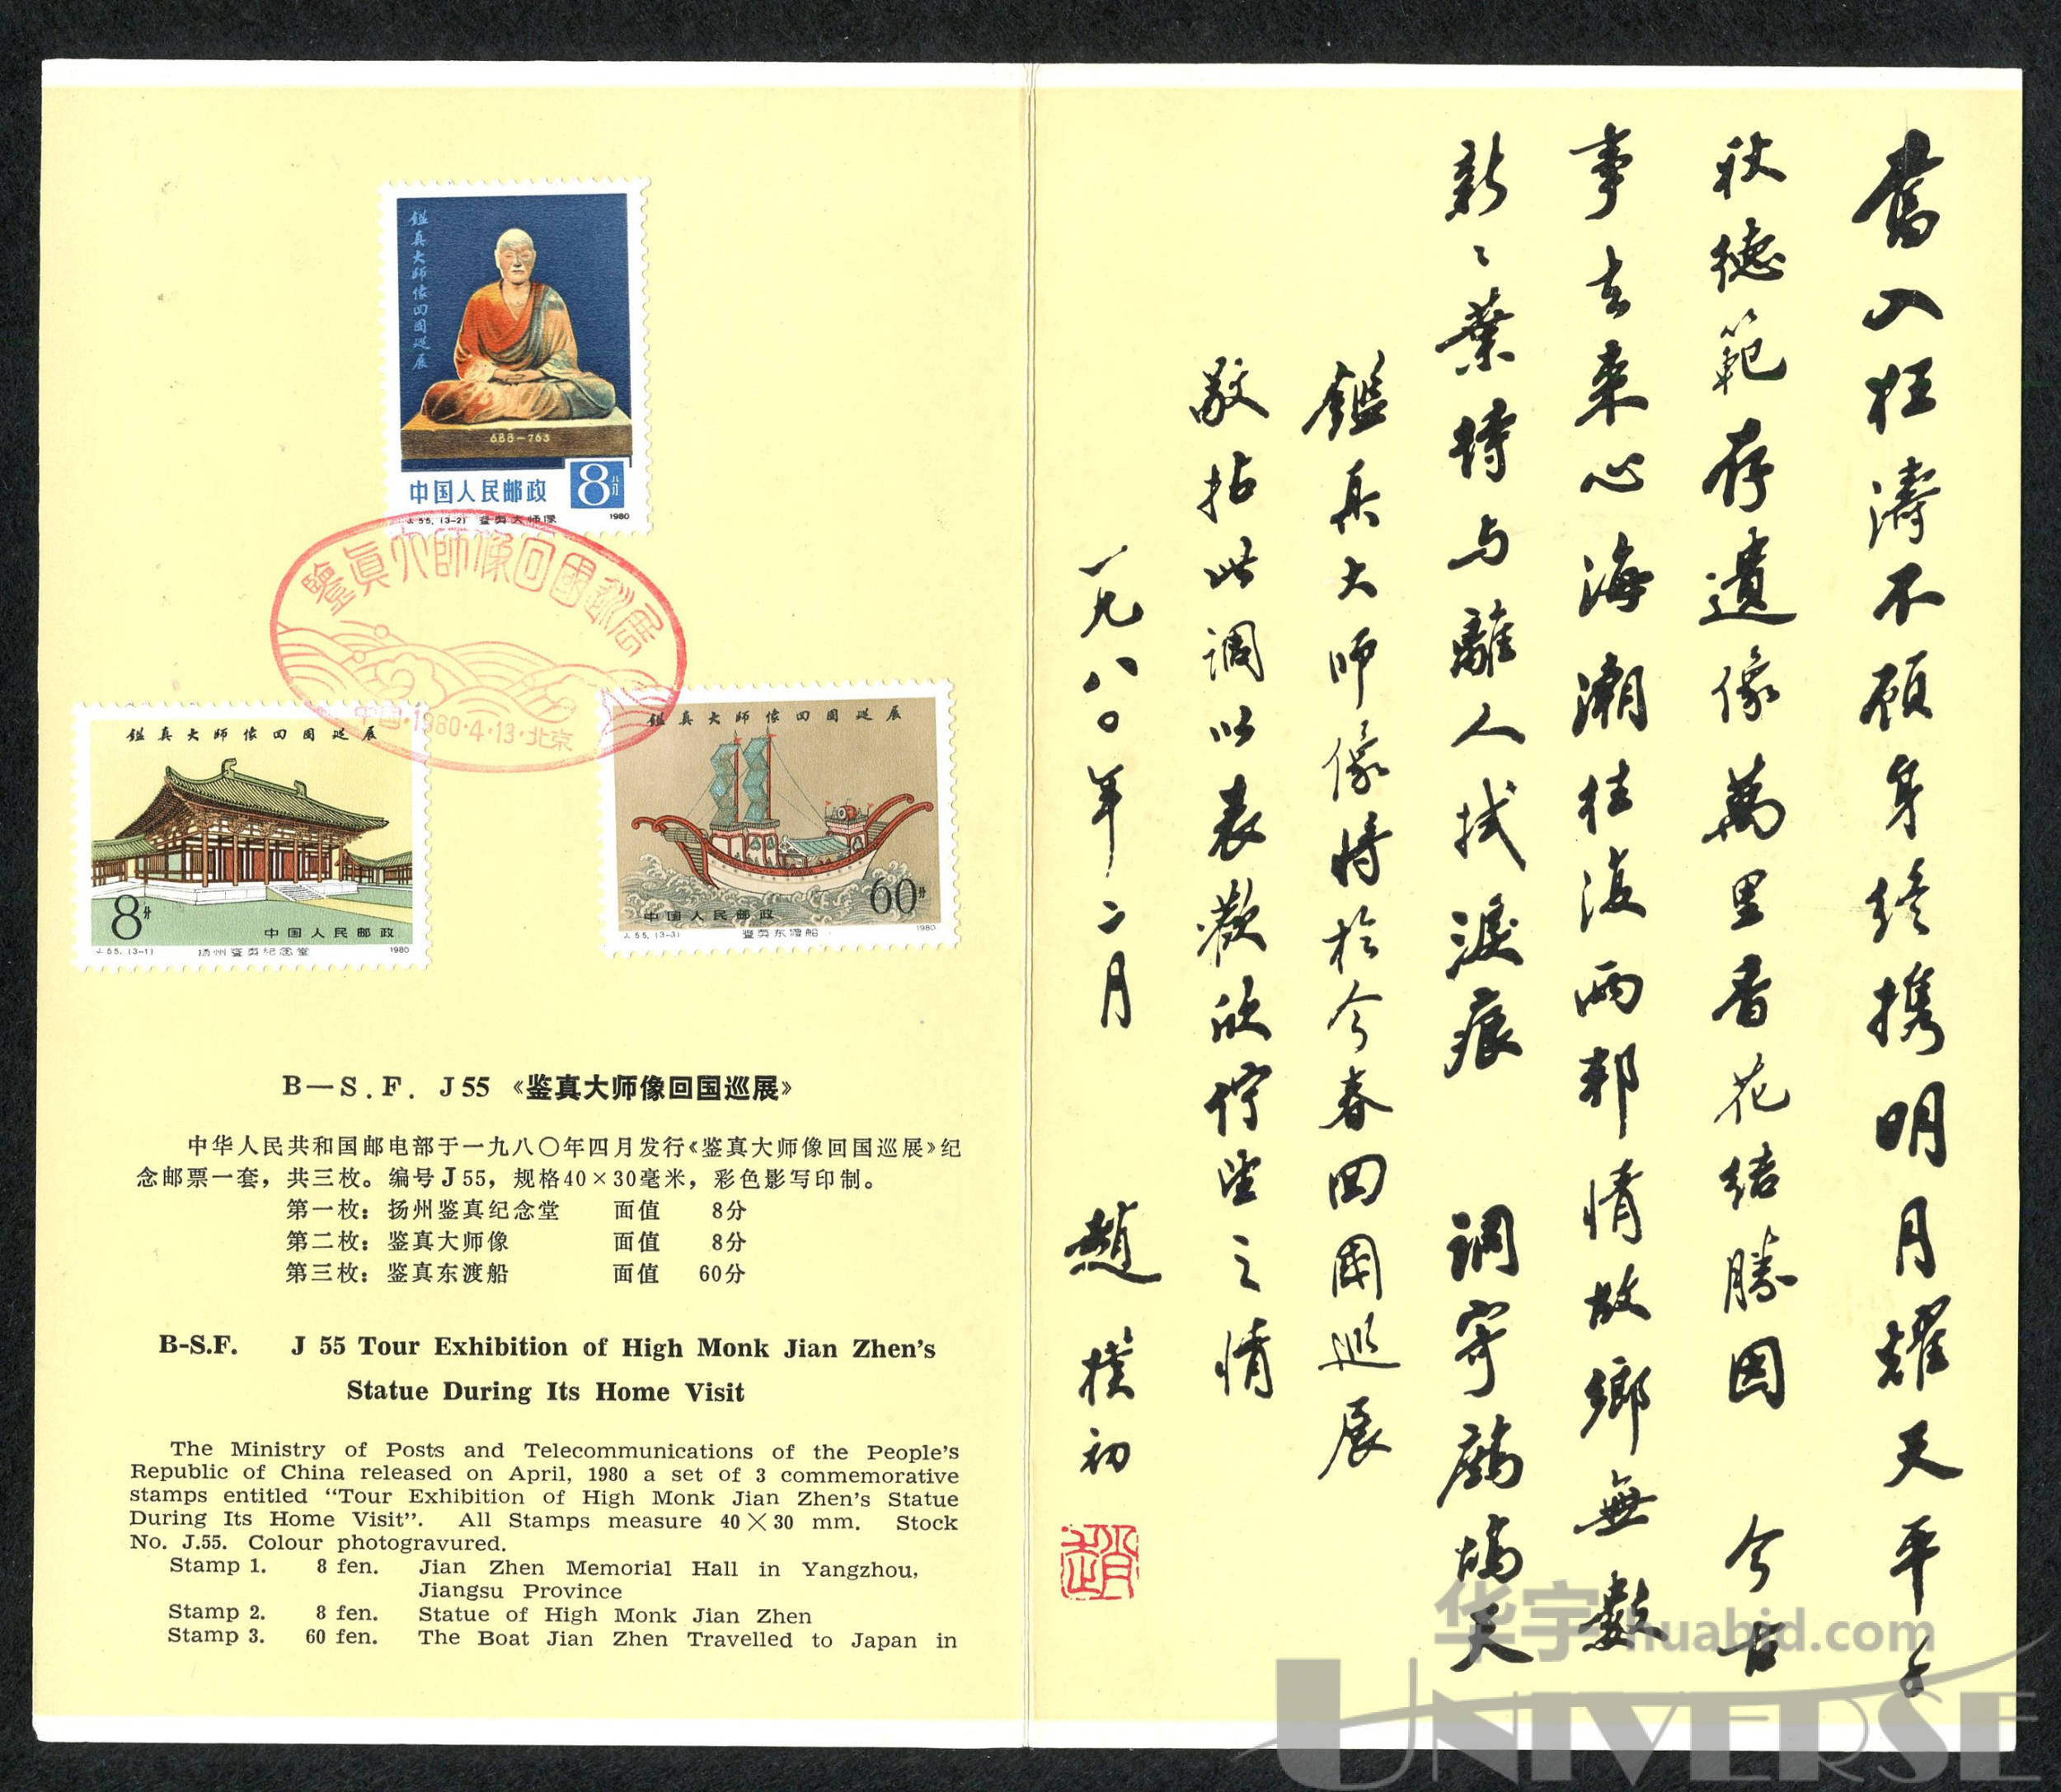 鑑真大師像回國巡展
688-763
中国人民邮政
8分
J.55.(3-2) 鉴真大师像 1980
鑒真大師像回國巡展
中国·1980·4·13·北京
鑑真大師像回國巡展
8分
中国人民邮政
J.55.(3-1) 扬州鉴真纪念堂 1980
鑑真大師像回國巡展
60分
中国人民邮政
J.55.(3-3) 鉴真东渡船 1980
B—S.F. J55《鉴真大师像回国巡展》
中华人民共和国邮电部于一九八〇年四月发行《鉴真大师像回国巡展》纪
念邮票一套，共三枚。编号J55，规格40×30毫米，彩色影写印制。
第一枚：扬州鉴真纪念堂 面值 8分
第二枚：鉴真大师像 面值 8分
第三枚：鉴真东渡船 面值 60分
B-S.F. J 55 Tour Exhibition of High Monk Jian Zhen's
Statue During Its Home Visit
The Ministry of Posts and Telecommunications of the People's
Republic of China released on April, 1980 a set of 3 commemorative
stamps entitled “Tour Exhibition of High Monk Jian Zhen's Statue
During Its Home Visit”. All Stamps measure 40×30 mm. Stock
No. J.55. Colour photogravured.
Stamp 1. 8 fen. Jian Zhen Memorial Hall in Yangzhou,
Jiangsu Province
Stamp 2. 8 fen. Statue of High Monk Jian Zhen
Stamp 3. 60 fen. The Boat Jian Zhen Travelled to Japan in
奮入狂濤不顧身終攜明月耀天平千
秋德範存遺像萬里香花結勝因 今古
事去来心海潮往復两邦情故鄉無數
新〻葉待与離人拭淚痕 調寄鷓鴣天
鑑真大师像将於今春回國巡展
敬拈此調以表歡欣佇望之情
一九八〇年二月 趙樸初
趙
华宇 huabid.com
UNIVERSE